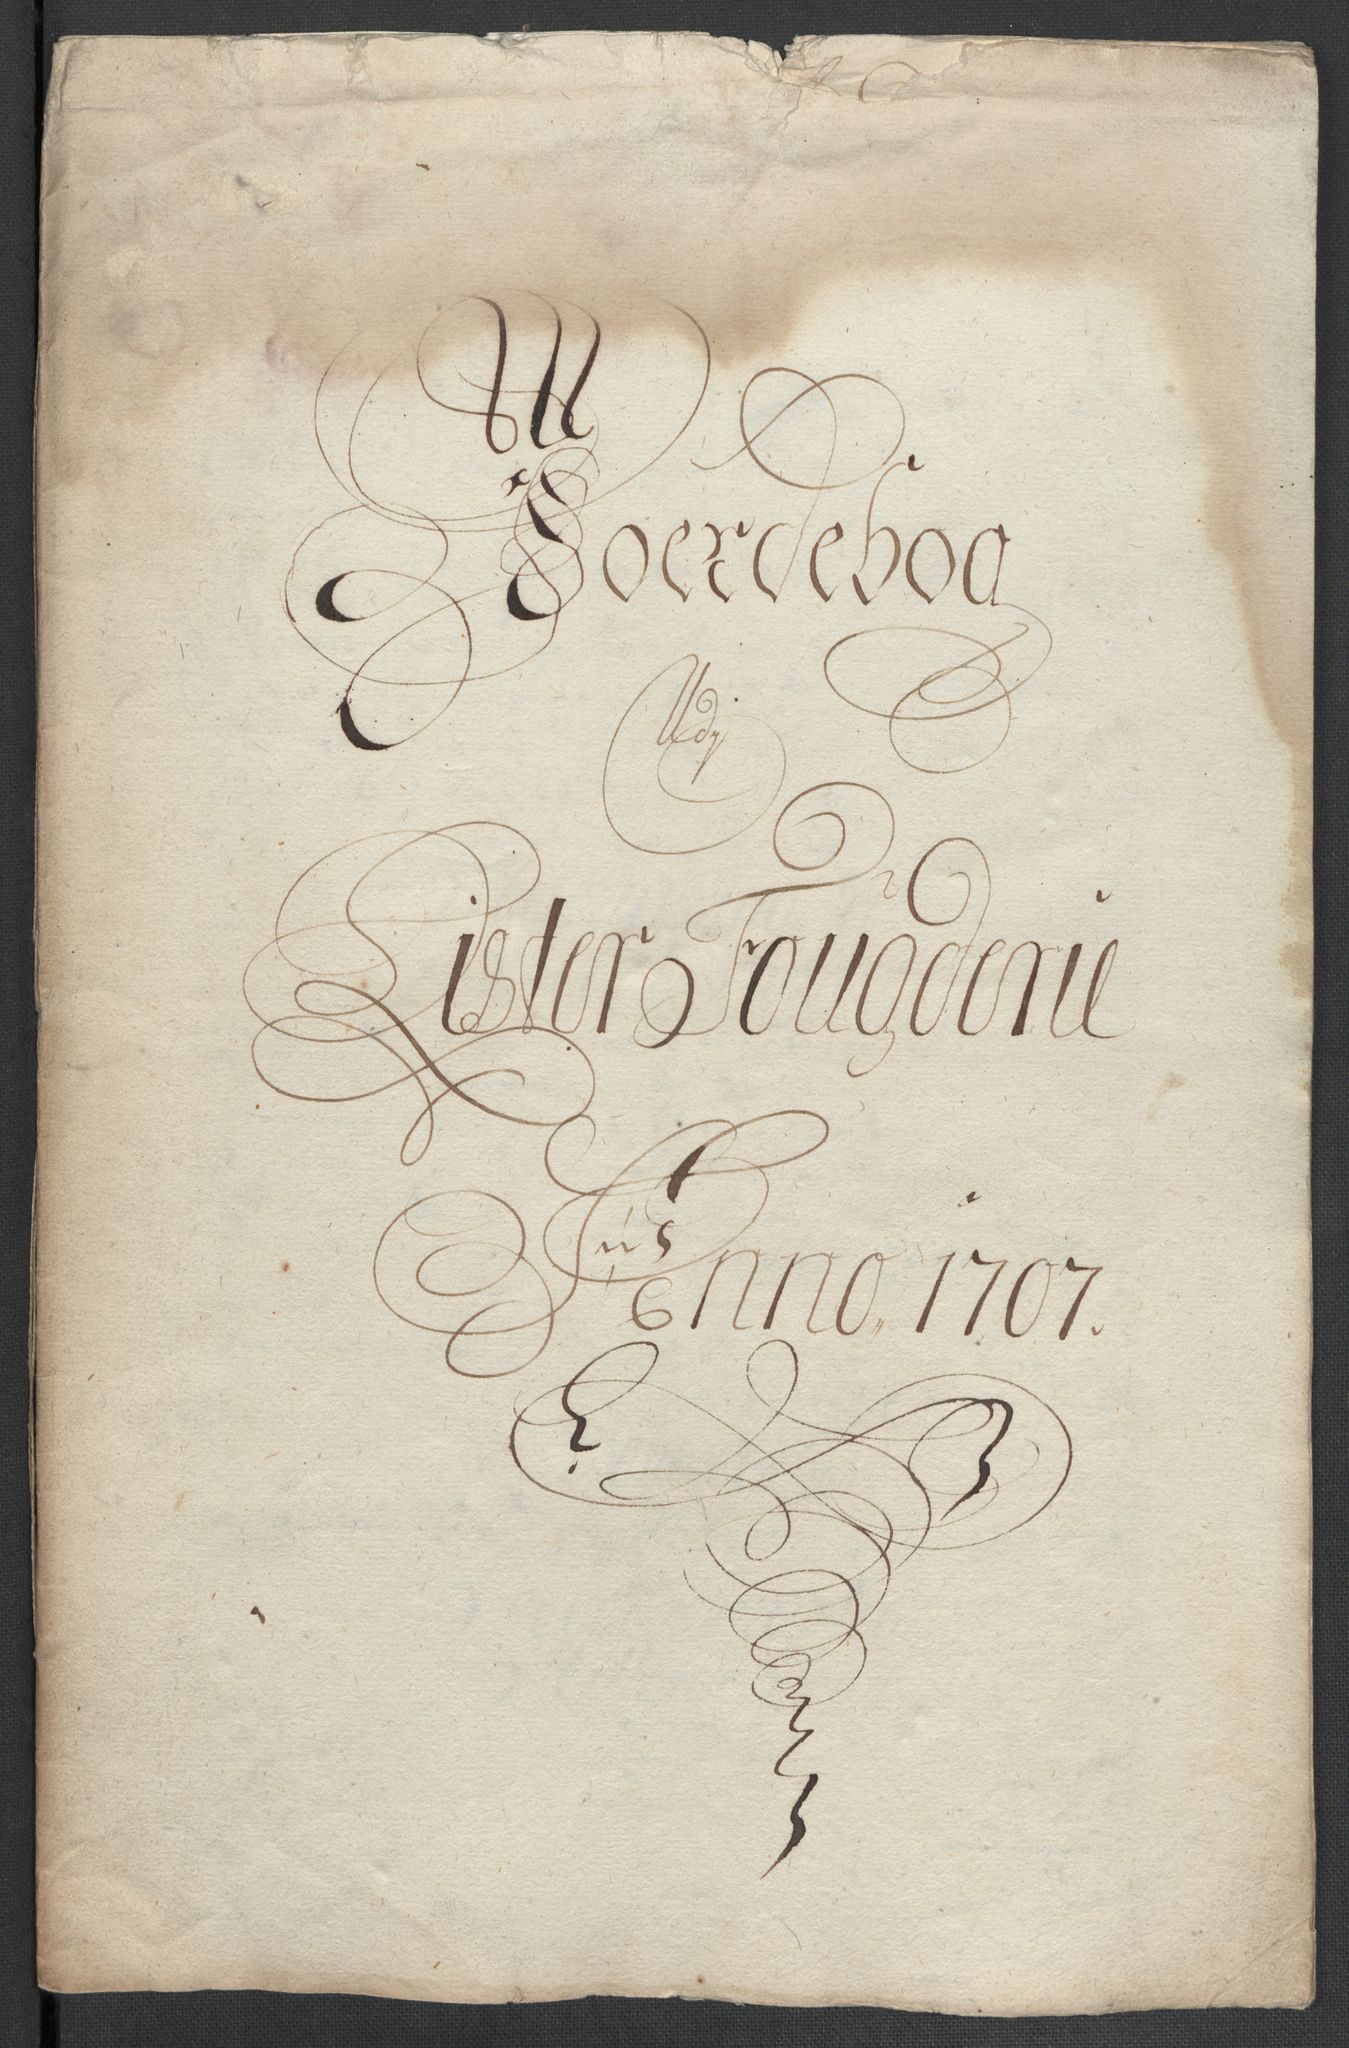 Joerdebog
Udj
Lister Fougderie
Anno, 1707.